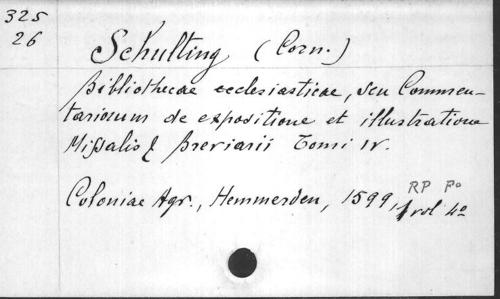 325
26
Schulting (Corn.)
Bibliothecae ecclesiasticae, seu Commen-
tariorum de expositione et illustratione
Missalis & Breviarii Tomi IV.
RP Fo
Coloniae Agr., Hemmerden, 1599, 1 vol 4o